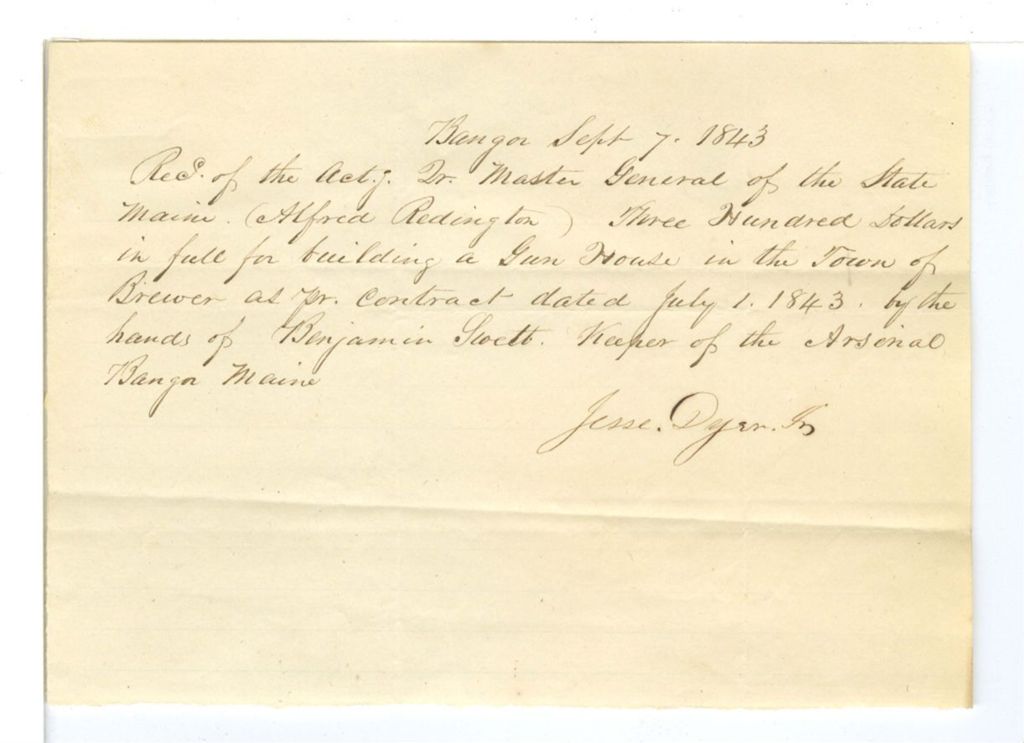 Bangor Sept 7. 1843
Recd. of the Actg. Qr. Master General of the State
Maine. (Alfred Redington) Three Hundred Dollars
in full for building a Gun House in the Town of
Brewer as pr. Contract dated July 1. 1843. by the
hands of Benjamin Swett. Keeper of the Arsenal
Bangor Maine
Jesse. Dyer. Jr